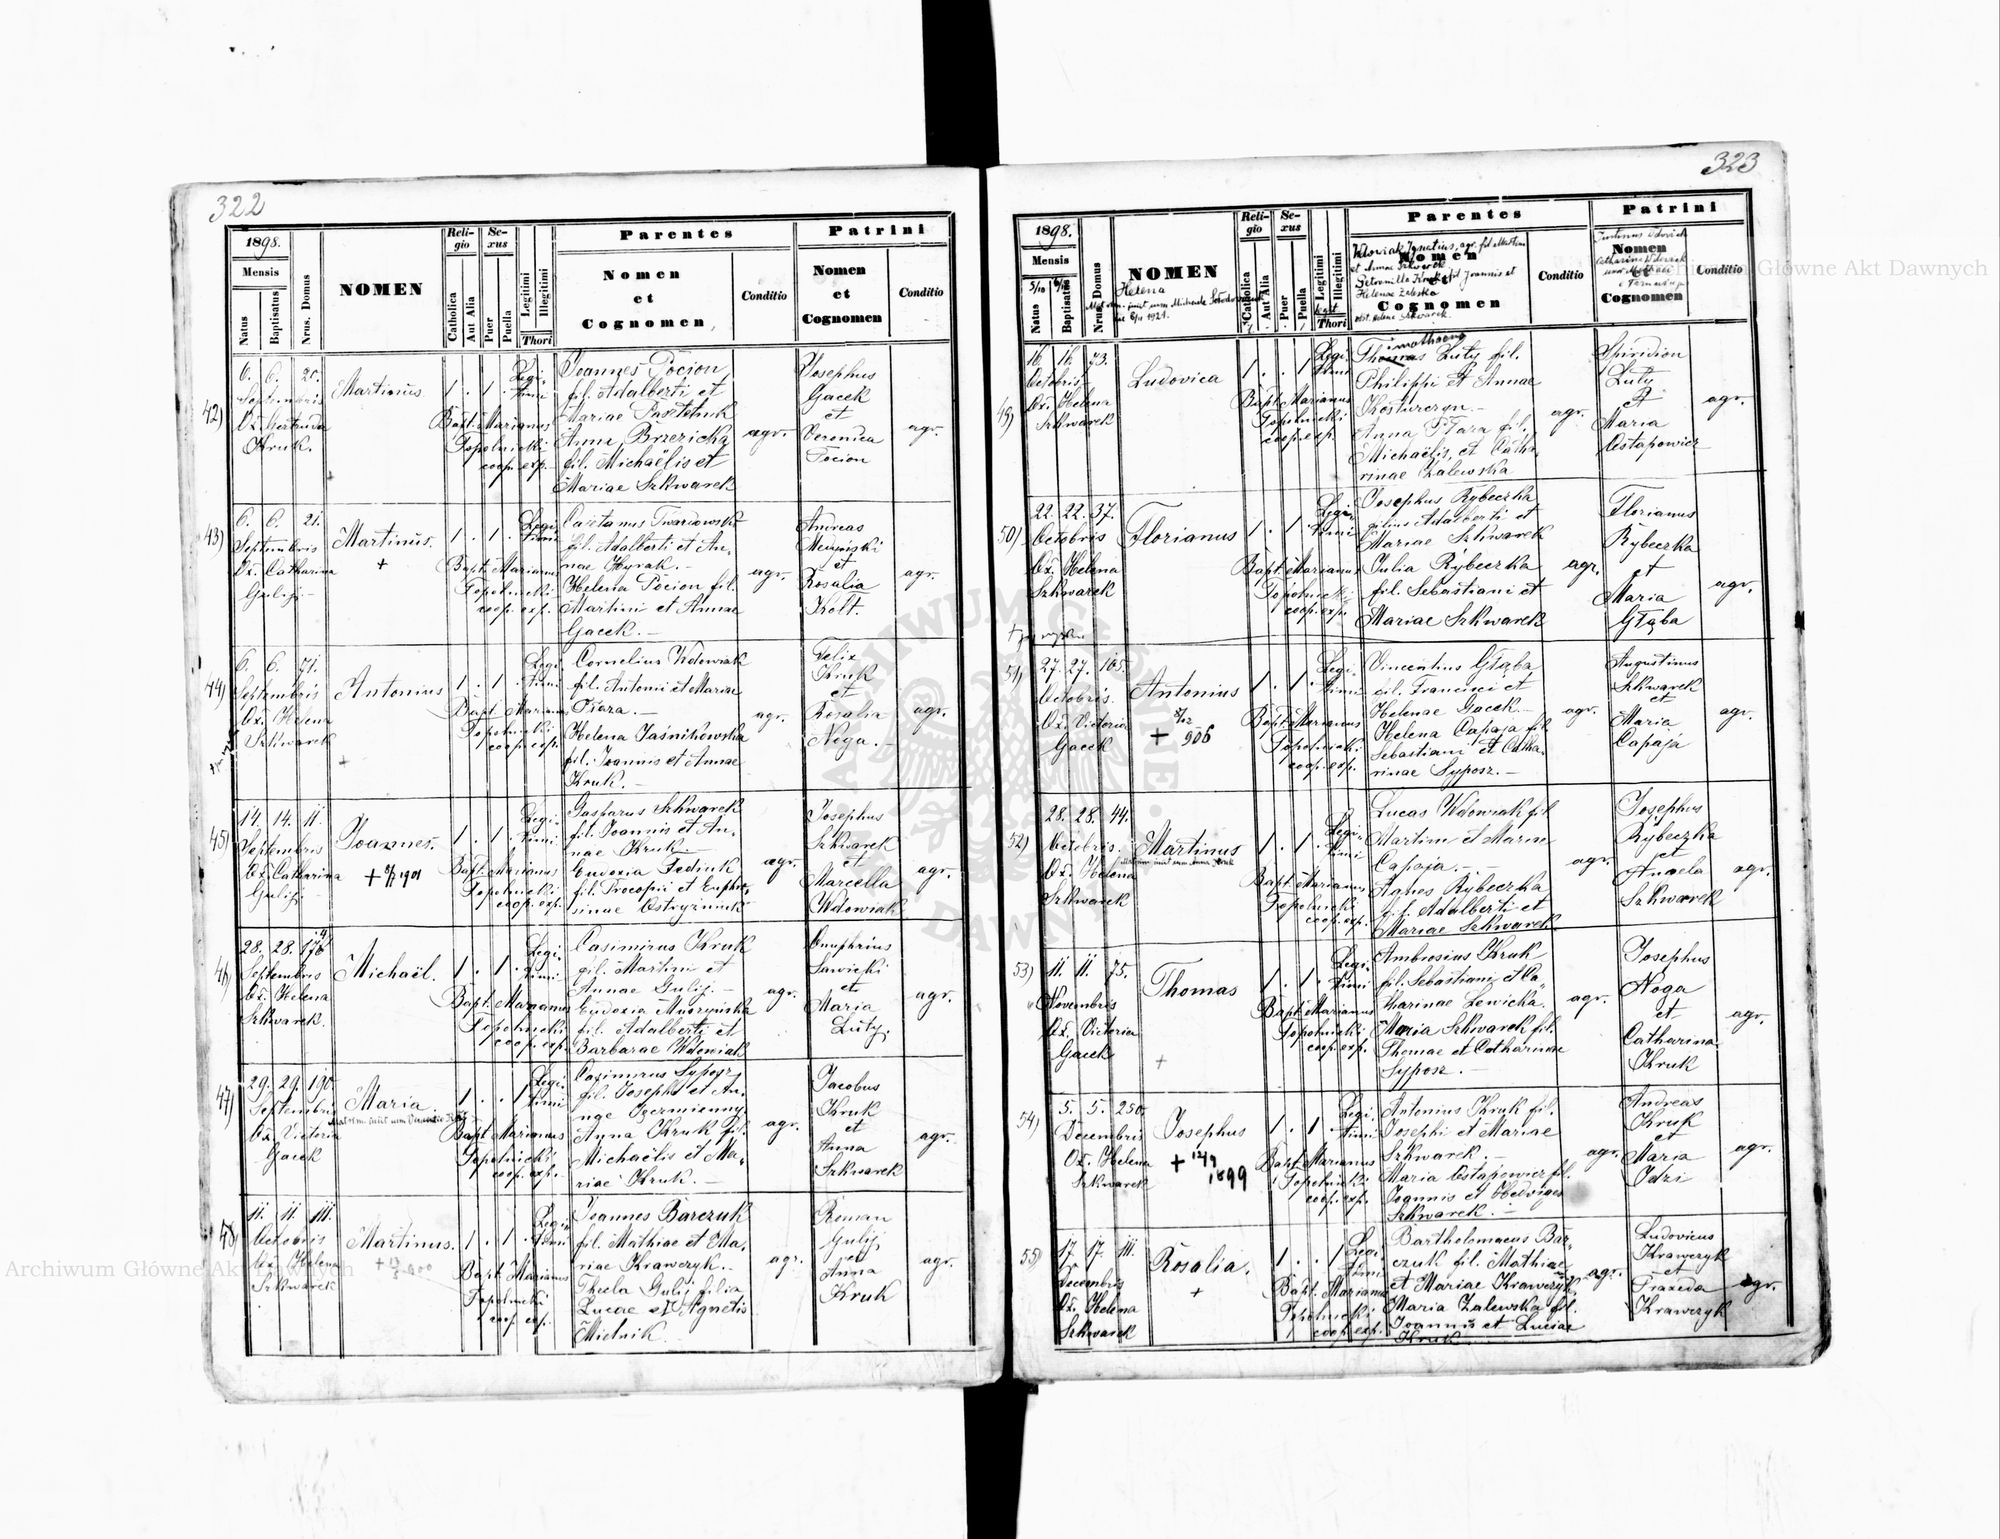 322
1898.
Mensis
Natus
Baptisatus
Nrus. Domus
NOMEN
Religio
Catholica
Aut Alia
Sexus
Puer
Puella
Legitimi
Illegitimi
Thori
Parentes
Nomen
et
Cognomen
Conditio
Patrini
Nomen
et
Cognomen
Conditio
42)
6. 6. 20.
Septembris
Ob. Gertruda
Kruk.
Martinus
1 . 1 .
Legi-
timi
Bapt. Marianus
Topolnicki
coop. exp.
Joannes Pocion
fil. Adalberti et
Mariae
Anna Brzezicka
fil. Michaëlis et
Mariae Szkwarek
agr.
Josephus
Gacek
et
Veronica
Pocion
agr.
43)
6. 6. 21.
Septembris
Ob. Catharina
Gulij
Martinus.
+
1 . 1 .
Legi-
timi
Bapt. Marianus
Topolnicki
coop. exp.
Caetanus Twardowski
fil. Adalberti et An-
nae Hyrak. —
Helena Pocion fil.
Martini et Annae
Gacek. —
agr.
Andreas
et
Rosalia
Kott.
agr.
44)
6. 6. 71.
Septembris
Ob. Helena
Szkwarek
Antonius
+
1 . 1 .
Legi-
timi
Bapt. Marianus
Topolnicki
coop. exp.
Cornelius Wdowiak
fil. Antonii et Mariae
Fiara. —
Helena Jaśnikowska
fil. Joannis et Annae
Kruk. —
agr.
Felix
Kruk
et
Rosalia
Noga. —
agr.
45)
14. 14. 11.
Septembris
Ob. Catharina
Gulij
Joannes.
+
1 . 1 .
Legi-
timi
Bapt. Marianus
Topolnicki
coop. exp.
Gasparus Szkwarek
fil. Joannis et An-
nae Kruk. —
Eudoxia Fediuk
fil. Procopii et Euphro-
sinae Ostryżniuk
agr.
Josephus
Szkwarek
et
Marcella
Wdowiak
agr.
46)
28. 28.
Septembris
Ob. Helena
Szkwarek.
Michaël.
1 . 1 .
Legi-
timi
Bapt. Marianus
Topolnicki
coop. exp.
Casimirus Kruk
fil. Martini et
Annae Gulij. —
Eudoxia Muszyńska
fil. Adalberti et
Barbarae Wdowiak
agr.
Onuphrius
Sawicki
et
Maria
Luty.
agr.
47)
29. 29. 190.
Septembris
Ob. Victoria
Gacek
Maria
1 . . 1
Legi-
timi
Bapt. Marianus
Topolnicki
coop. exp.
Casimirus Syposz
fil. Josephi et An-
nae
Anna Kruk fil.
Michaëlis et Ma-
riae Kruk. —
agr.
Jacobus
Kruk
et
Anna
Szkwarek
agr.
48)
11. 11. 111.
Octobris
Ob. Helena
Szkwarek
Martinus.
+
1 . 1 .
Legi-
timi
Bapt. Marianus
Topolnicki
coop. exp.
Joannes Barczuk
fil. Mathiae et Ma-
riae Krawczyk. —
Thecla Gulij filia
Lucae et Agnetis
Mielnik. —
agr.
Roman
Gulij
et
Anna
Kruk
agr.
323
1898.
Mensis
Natus
Baptisatus
Nrus Domus
NOMEN
Helena
Religio
Catholica
Aut Alia
Sexus
Puer
Puella
Legitimi
Illegitimi
Thori
Parentes
Wdowiak Ignatius, agr. fil. Martini
et Annae Szkwarek
Petronilla Kruk fil Joannis et
Helenae Zaleska
Nomen
et
Cognomen
obst. Helena Szkwarek
Conditio
Patrini
Nomen
et
Cognomen
Conditio
49)
16. 16. 73.
Octobris
Ob. Helena
Szkwarek
Ludovica
1 . . 1
Legi-
timi
Bapt. Marianus
Topolnicki
coop. exp.
Thomas Luty fil.
Philippi et Annae
Kosturczyn. —
Anna Fiara fil.
Michaëlis et Catha-
rinae Zalewska
agr.
Spiridion
Luty
et
Maria
Ostapowicz
agr.
50)
22. 22. 37.
Octobris
Ob. Helena
Szkwarek
Florianus
1 . 1 .
Legi-
timi
Bapt. Marianus
Topolnicki
coop. exp.
Josephus Rybeczka
filius Adalberti et
Mariae Szkwarek
Julia Rybeczka
fil. Sebastiani et
Mariae Szkwarek
agr.
Florianus
Rybeczka
et
Maria
Głąba
agr.
51)
27. 27. 165.
Octobris.
Ob. Victoria
Gacek
Antonius
+ 8/12 906
1 . 1 .
Legi-
timi
Bapt. Marianus
Topolnicki
coop. exp.
Vincentius Głąba
fil. Francisci et
Helenae Gacek. —
Helena Capaja fil.
Sebastiani et Catha-
rinae Syposz. —
agr.
Augustinus
Szkwarek
et
Maria
Capaja
agr.
52)
28. 28. 44.
Octobris.
Ob. Helena
Szkwarek
Martinus
1 . 1 .
Legi-
timi
Bapt. Marianus
Topolnicki
coop. exp.
Lucas Wdowiak fil.
Martini et Mariae
Capaja. —
Agnes Rybeczka
fil. Adalberti et
Mariae Szkwarek
agr.
Josephus
Rybeczka
et
Angela
Szkwarek
agr.
53)
11. 11. 75.
Novembris
Ob. Victoria
Gacek
Thomas
+
1 . 1 .
Legi-
timi
Bapt. Marianus
Topolnicki
coop. exp.
Ambrosius Kruk
fil. Sebastiani et Ca-
tharinae Lewicka.
Maria Szkwarek fil.
Thomae et Catharinae
Syposz. —
agr.
Josephus
Noga
et
Catharina
Kruk
agr.
54)
5. 5. 250.
Decembris
Ob. Helena
Szkwarek
Josephus
+ 12/9
1899
1 . 1 .
Legi-
timi
Bapt. Marianus
Topolnicki
coop. exp.
Antonius Kruk fil.
Josephi et Mariae
Szkwarek. —
Maria Ostapowicz fil.
Joannis et Hedviges
Szkwarek. —
agr.
Andreas
Kruk
et
Maria
Idzi
agr.
55)
17. 17. 111.
Decembris
Ob. Helena
Szkwarek
Rosalia.
+
1 . . 1
Legi-
timi
Bapt. Marianus
Topolnicki
coop. exp.
Bartholomaeus Bar-
czuk fil. Mathiae
et Mariae Krawczyk
Maria Zalewska fil.
Joannis et Luciae
Kruk.
agr.
Ludovicus
Krawczyk
et
Praxeda
Krawczyk
agr.
Archiwum Główne Akt Dawnych
Archiwum Główne Akt Dawnych
ARCHIWUM GŁÓWNE AKT DAWNYCH